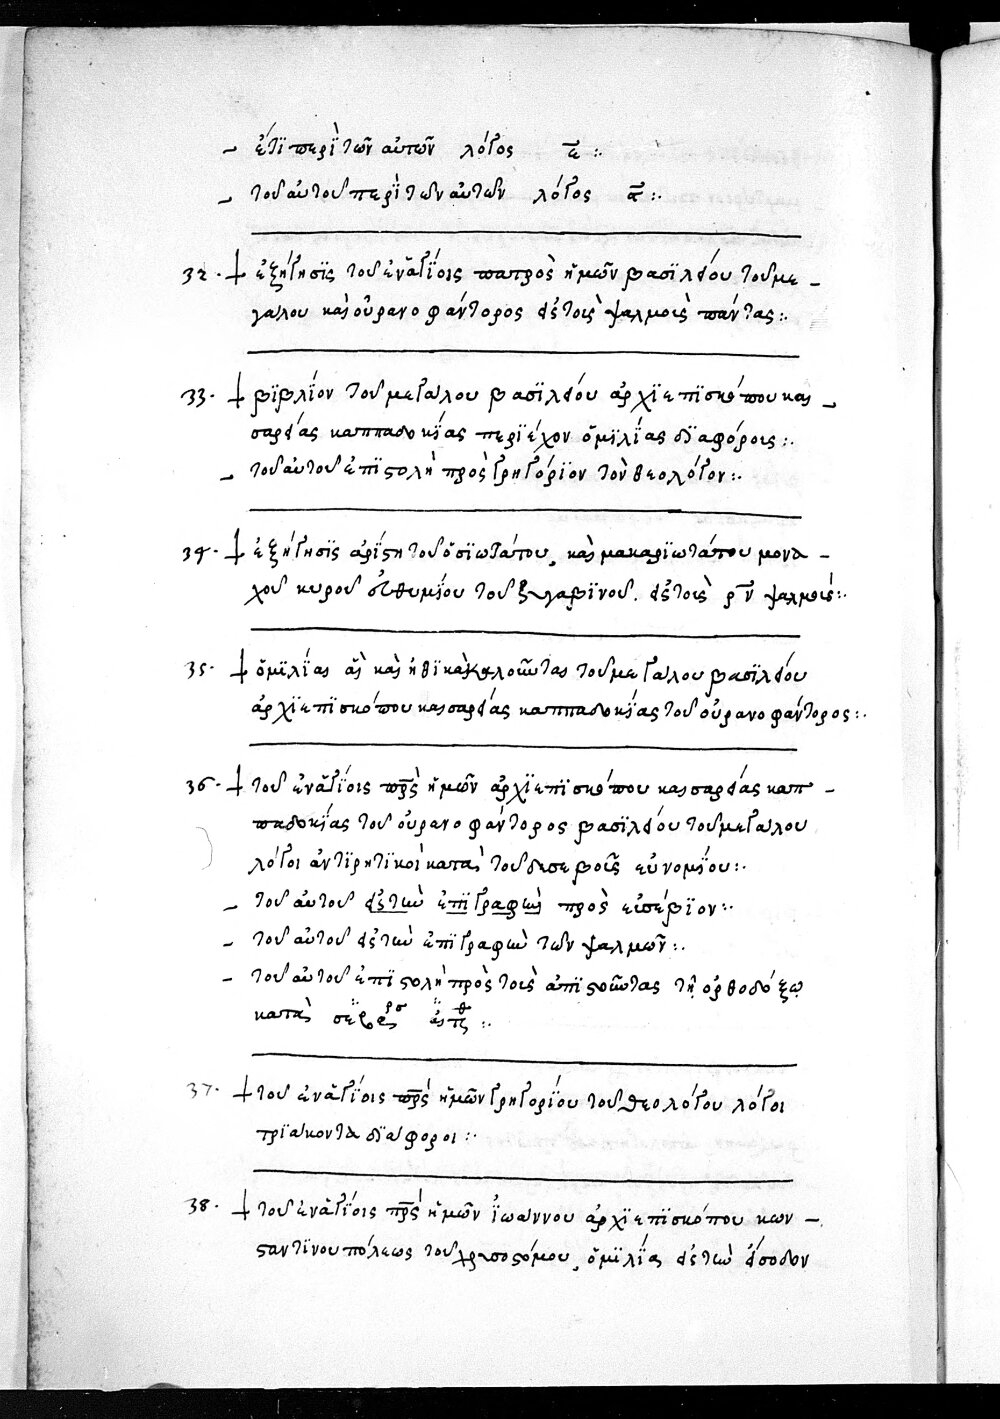 – ἔτϊ περὶ τῶν αὐτῶν λόγος ε̄ :·
– τοῦ αὐτοῦ περὶ τῶν αὐτῶν λόγος ᾱ :·
32· ┼ ἐξήγησϊς τοῦ ἐν ἁγΐοις πατρὸς ἡμῶν βασϊλείου τοῦ με –
γάλου καὶ οὐρανοφάντορος εἰς τοὺς ψαλμοὺς πάντας :·
33· ┼ βϊβλΐον τοῦ μεγάλου βασϊλείου ἀρχϊεπϊσκόπου και –
σαρείας καππαδοκΐας περϊέχον ὁμϊλΐας δϊαφόρους :·
– τοῦ αὐτοῦ ἐπϊστολὴ πρὸς γρηγόρϊον τὸν θεολόγον :·
34· ┼ ἐξήγησϊς ἀρΐστη τοῦ ὁσϊωτάτου, καὶ μακαρϊωτάτου μονα –
χοῦ κυροῦ εὐθυμΐου τοῦ ζυγαβϊνοῦ. εἰς τοὺς ρ̄ν̄ ψαλμούς :·
35· ┼ ὁμϊλΐας αἳ καὶ ἠθϊκαὶ καλοῦνται τοῦ μεγάλου βασϊλείου
ἀρχϊεπϊσκόπου καισαρείας καππαδοκΐας τοῦ οὐρανοφάντορος :·
36· ┼ τοῦ ἐν ἁγΐοις πρ̄ς ἡμῶν ἀρχϊεπϊσκόπου καισαρείας καπ –
παδοκΐας τοῦ οὐρανοφάντορος βασϊλείου τοῦ μεγάλου
λόγοι ἀντϊρητϊκοὶ κατὰ τοῦ δυσσεβοῦς εὐνομΐου :·
– τοῦ αὐτοῦ εἰς τὴν ἐπϊγραφὴν πρὸς εὐσέβϊον :·
– τοῦ αὐτοῦ εἰς τὴν ἐπϊγραφὴν τῶν ψαλμῶν :·
– τοῦ αὐτοῦ ἐπϊστολὴ πρὸς τοὺς ἀπϊστοῦντας τῇ ὀρθοδόξῳ
κατὰ
37· ┼ τοῦ ἐν ἁγΐοις πρ̄ς ἡμῶν γρηγορΐου τοῦ θεολόγου λόγοι
τρϊάκοντα δϊάφοροι :·
38· ┼ τοῦ ἐν ἁγΐοις πρ̄ς ἡμῶν ἰωάννου ἀρχϊεπϊσκόπου κων –
σταντϊνουπόλεως τοῦ χρυσοστόμου, ὁμϊλΐα εἰς τὴν εἴσοδον